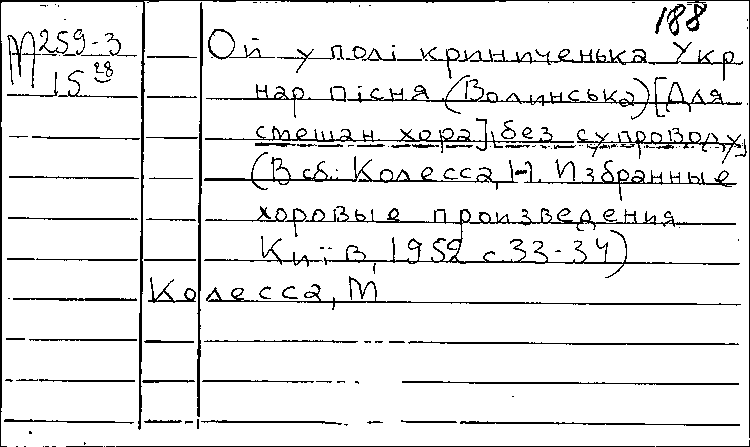 188
М259-3
15 28
Ой у полі криниченька Укр
нар. пісня (Волинська) [Для
смешан хора] [без супроводу]
(В сб.: Колесса, Н. Избранные
хоровые произведения
Київ, 1952 с 33-34)
Колесса, М